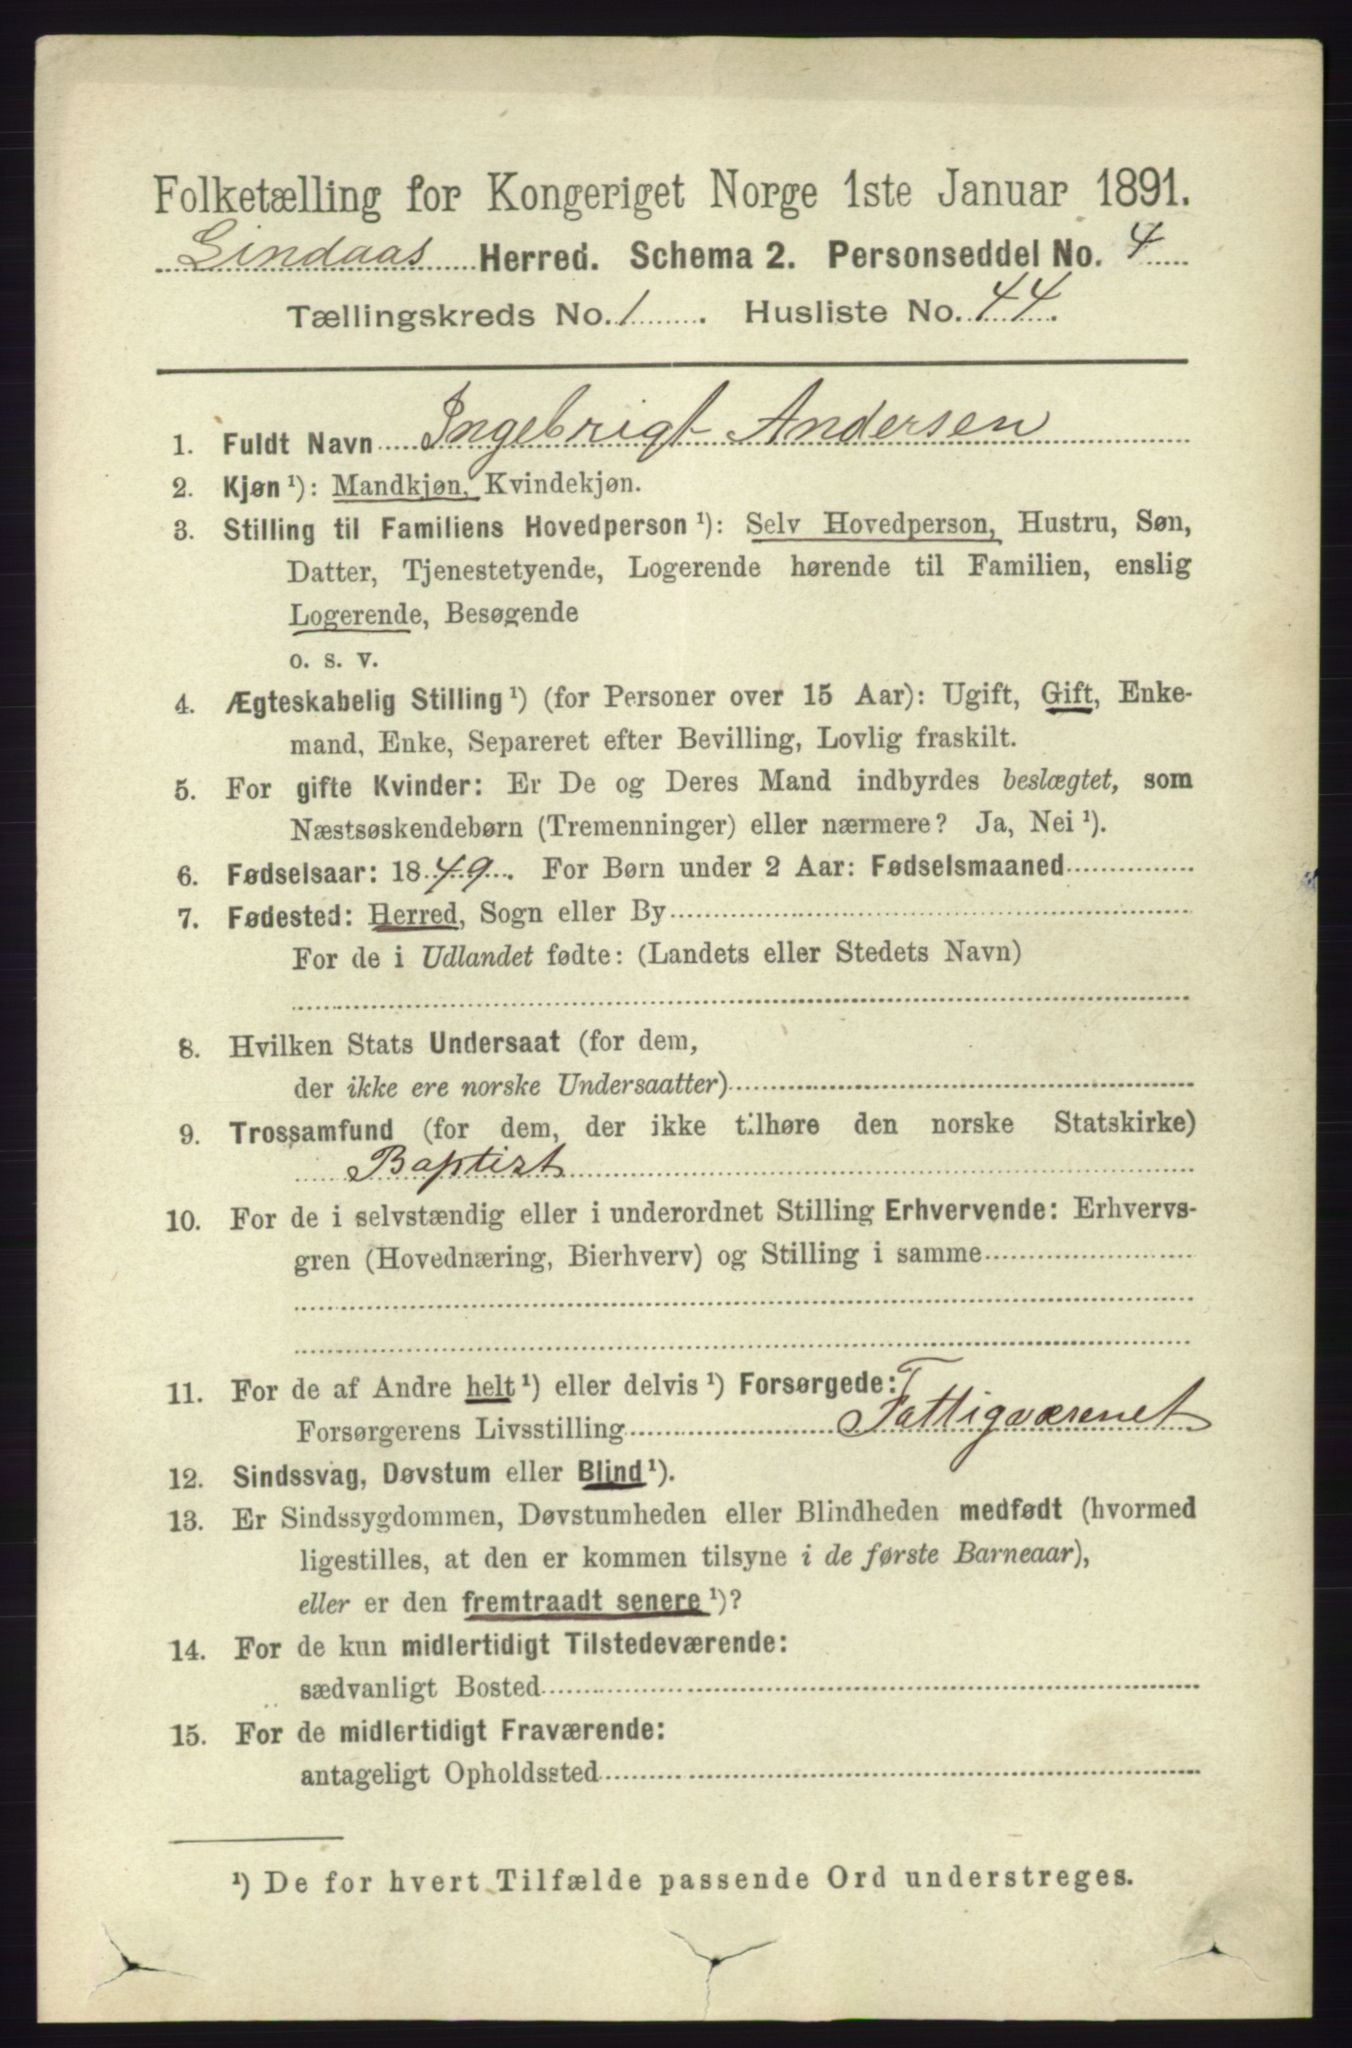 Folketælling for Kongeriget Norge 1ste Januar 1891.
Lindaas Herred. Schema 2. Personseddel No. 4
Tællingskreds No. 1. Husliste No. 44.
1. Fuldt Navn Ingebrigt Andersen
2. Kjøn ¹): Mandkjøn, Kvindekjøn.
3. Stilling til Familiens Hovedperson ¹): Selv Hovedperson, Hustru, Søn,
Datter, Tjenestetyende, Logerende hørende til Familien, enslig
Logerende, Besøgende
o. s. v.
4. Ægteskabelig Stilling ¹) (for Personer over 15 Aar): Ugift, Gift, Enke-
mand, Enke, Separeret efter Bevilling, Lovlig fraskilt.
5. For gifte Kvinder: Er De og Deres Mand indbyrdes beslægtet, som
Næstsøskendebørn (Tremenninger) eller nærmere? Ja, Nei ¹).
6. Fødselsaar: 1849. For Børn under 2 Aar: Fødselsmaaned
7. Fødested: Herred, Sogn eller By
For de i Udlandet fødte: (Landets eller Stedets Navn)
8. Hvilken Stats Undersaat (for dem,
der ikke ere norske Undersaatter)
9. Trossamfund (for dem, der ikke tilhøre den norske Statskirke)
Baptist
10. For de i selvstændig eller i underordnet Stilling Erhvervende: Erhvervs-
gren (Hovednæring, Bierhverv) og Stilling i samme
11. For de af Andre helt ¹) eller delvis ¹) Forsørgede:
Forsørgerens Livsstilling Fattigvæsenet
12. Sindssvag, Døvstum eller Blind ¹).
13. Er Sindssygdommen, Døvstumheden eller Blindheden medfødt (hvormed
ligestilles, at den er kommen tilsyne i de første Barneaar),
eller er den fremtraadt senere ¹)?
14. For de kun midlertidigt Tilstedeværende:
sædvanligt Bosted
15. For de midlertidigt Fraværende:
antageligt Opholdssted
¹) De for hvert Tilfælde passende Ord understreges.